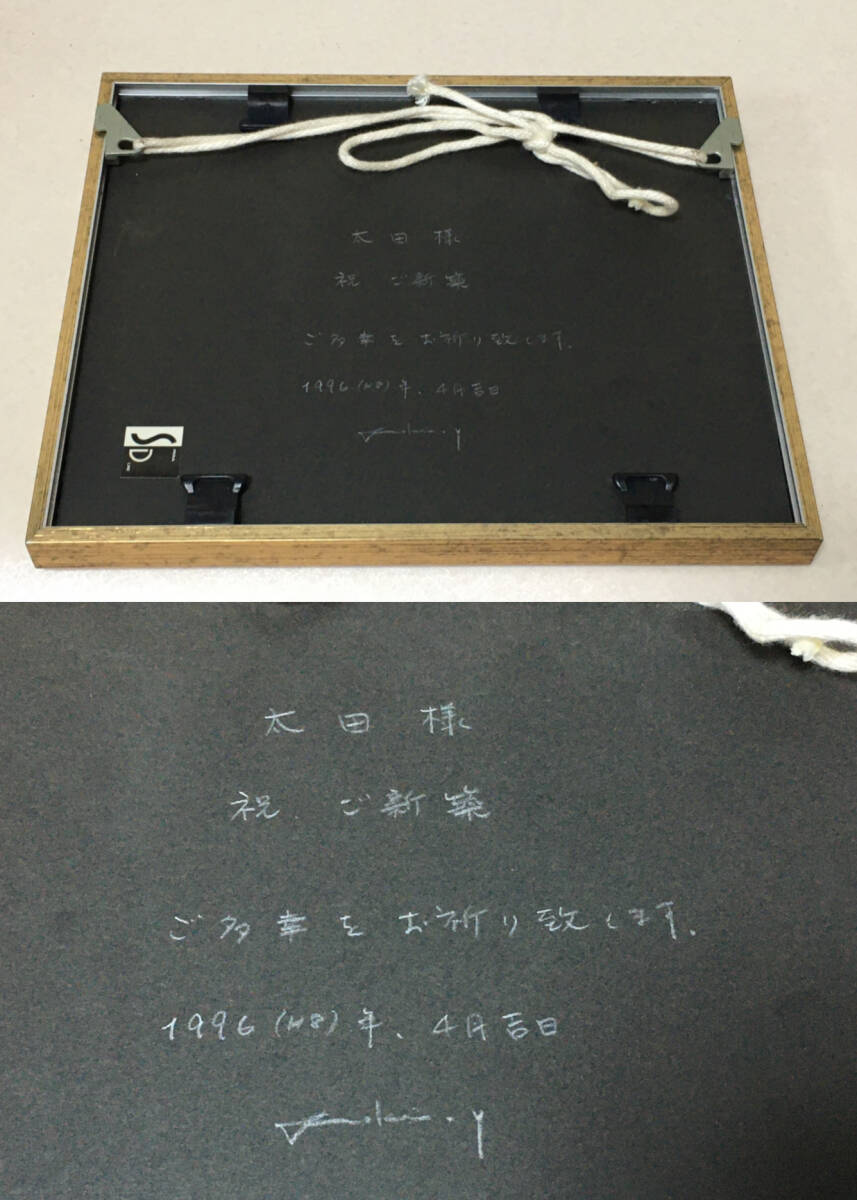 太田様
祝 ご新築
ご多幸をお祈り致します.
1996(H8)年、4月吉日
SD
太田様
祝 ご新築
ご多幸をお祈り致します.
1996(H8)年、4月吉日